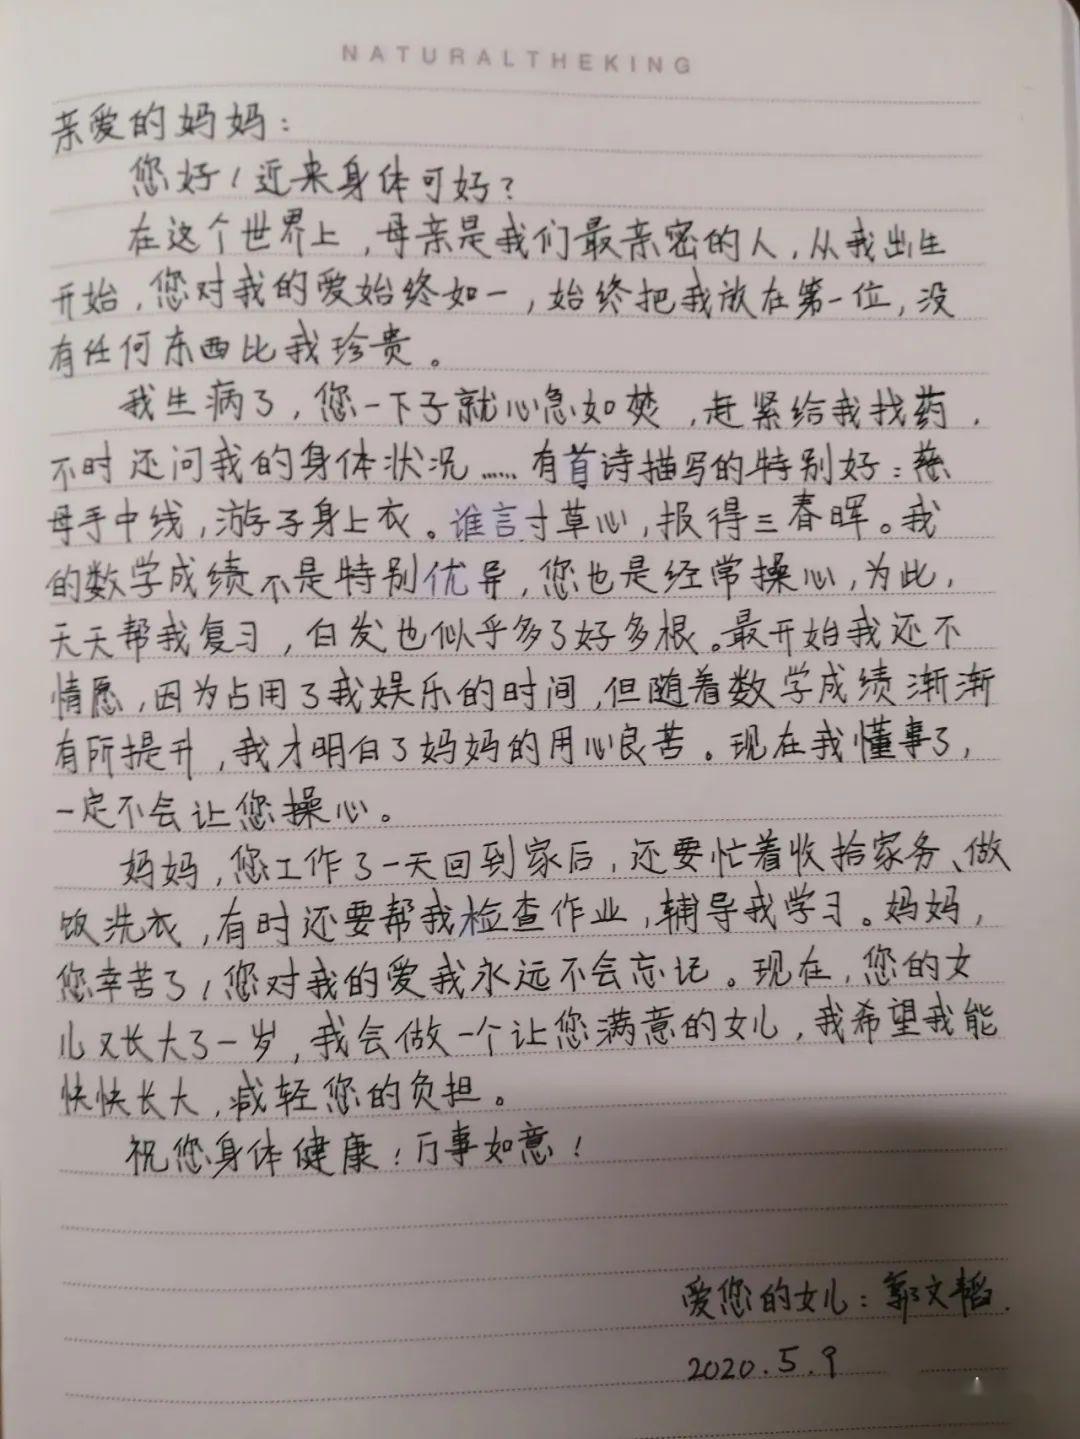 NATURALTHEKING
亲爱的妈妈：
您好！近来身体可好？
在这个世界上，母亲是我们最亲密的人，从我出生
开始，您对我的爱始终如一，始终把我放在第一位，没
有任何东西比我珍贵。
我生病了，您一下子就心急如焚，赶紧给我找药，
不时还问我的身体状况……有首诗描写的特别好：慈
母手中线，游子身上衣。谁言寸草心，报得三春晖。我
的数学成绩不是特别优异，您也是经常操心，为此，
天天帮我复习，白发也似乎多了好多根。最开始我还不
情愿，因为占用了我娱乐的时间，但随着数学成绩渐渐
有所提升，我才明白了妈妈的用心良苦。现在我懂事了，
一定不会让您操心。
妈妈，您工作了一天回到家后，还要忙着收拾家务、做
饭洗衣，有时还要帮我检查作业，辅导我学习。妈妈，
您辛苦了！您对我的爱我永远不会忘记。现在，您的女
儿又长大了一岁，我会做一个让您满意的女儿，我希望我能
快快长大，减轻您的负担。
祝您身体健康！万事如意！
爱您的女儿：郭文韬
2020.5.9